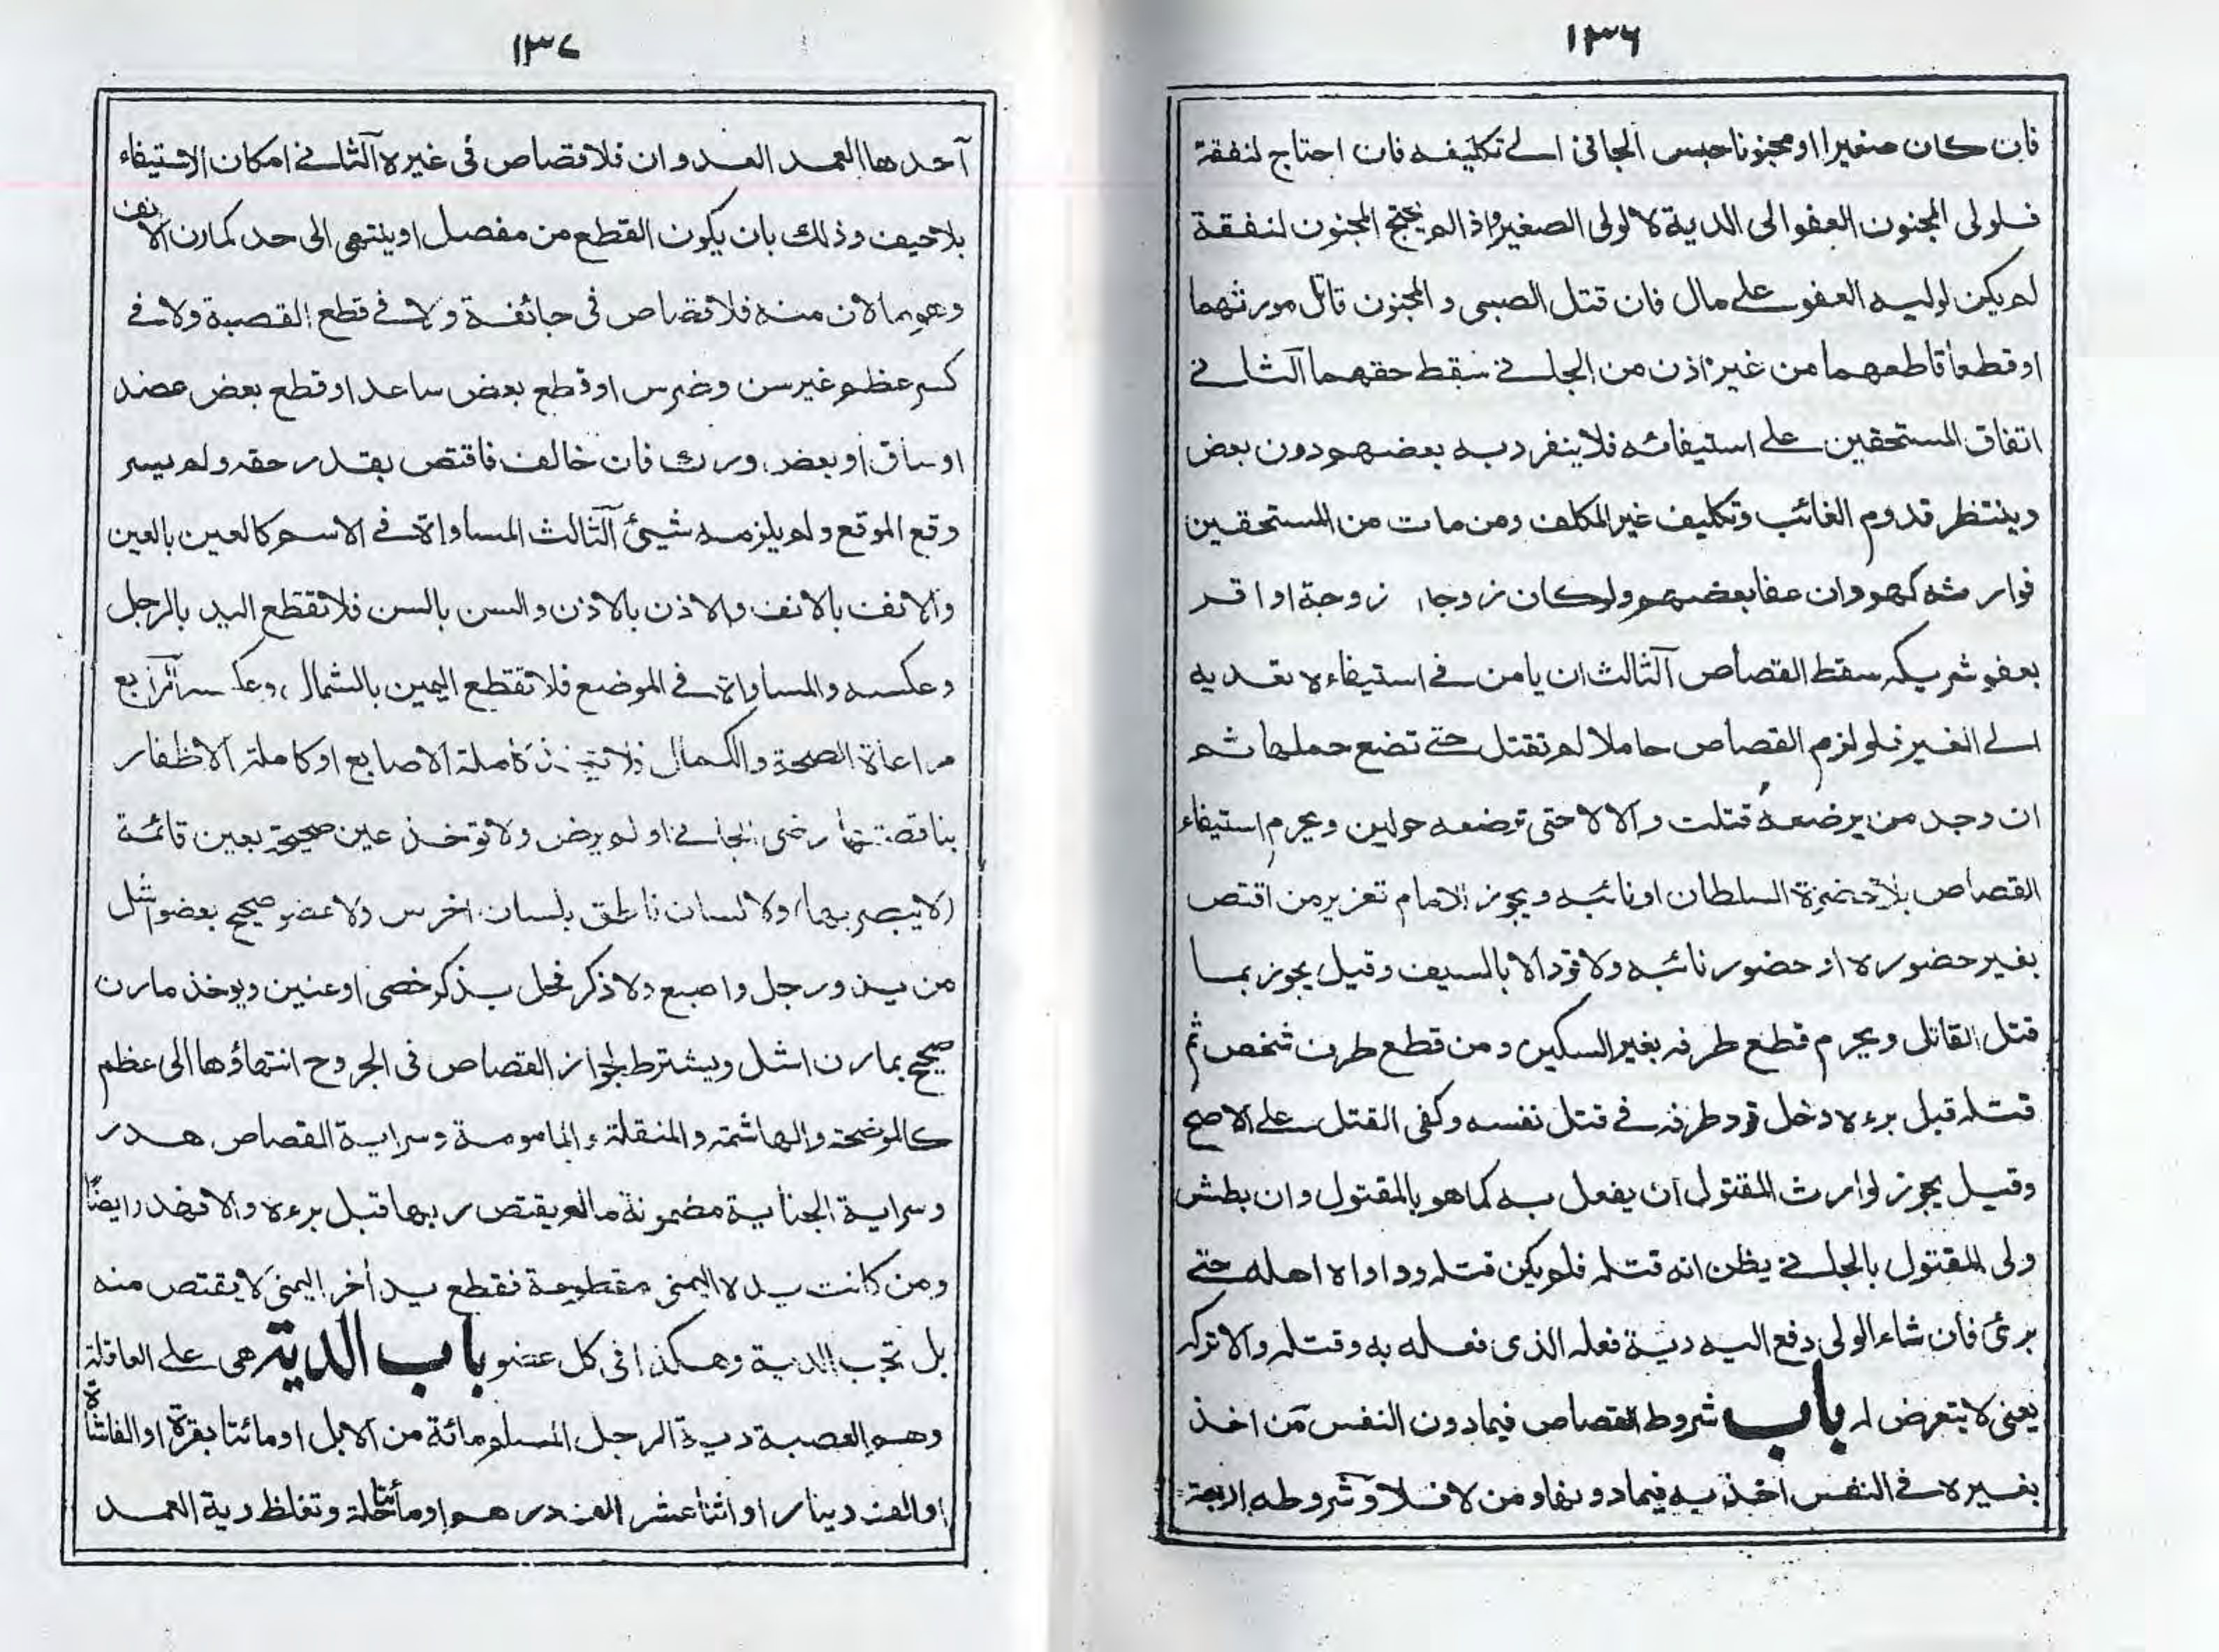 ١٣٦
فان كان صغيرا او مجنونا حبس الجاني الى تكليفه فان احتاج لنفقة
فلولى المجنون العفو الى الدية لا لولى الصغير واذا لم يحتج المجنون لنفقة
لم يكن لوليه العفو على مال فان قتل الصبى و المجنون قاتل مورثهما
او قطعا قاطعهما من غير اذن من الجانى سقط حقهما الثانى
اتفاق المستحقين على استيفائه فلا ينفرد به بعضهم دون بعض
وينتظر قدوم الغائب وتكليف غير المكلف ومن مات من المستحقين
فوارثه كهو وان عفا بعضهم ولو كان زوجا زوجة او اقر
بعفو شريكه سقط القصاص الثالث ان يامن فى استيفاءه تعديه
الى الغير فلو لزم القصاص حاملا لم تقتل حتى تضع حملها ثم
ان وجد من يرضعه قتلت والا لا حتى ترضعه حولين ويحرم استيفاء
القصاص بلا حضرة السلطان او نائبه ويجوز للامام تعزير من اقتص
بغير حضوره او حضور نائبه ولا قود الا بالسيف وقيل يجوز بما
قتل القاتل ويحرم قطع طرفه بغير السكين ومن قطع طرف شخص ثم
قتله قبل برءه دخل قود طرفه فى قتل نفسه وكفى القتل على الاصح
وقيل يجوز لوارث المقتول ان يفعل به كما هو بالمقتول وان بطش
ولى المقتول بالجانى يظن انه قتله فلم يكن قتله وداواه اهله حتى
برئ فان شاء الولى دفع اليه دية فعله الذى فعله به وقتله والا تركه
يعنى لا يتعرض له باب شروط القصاص فيما دون النفس من اخذ
بغيره فى النفس اخذ به فيما دونها ومن لا فلا وشروطه اربعة
١٣٧
احدها العمد العدوان فلا قصاص فى غيره الثانى امكان الاستيفاء
بلا حيف وذلك بان يكون القطع من مفصل او ينتهى الى حد كمارن الانف
وهو ما لان منه فلا قصاص فى جائفة ولا فى قطع القصبة ولا فى
كسر عظم غير سن وضرس او قطع بعض ساعد او قطع بعض عضد
او ساق او بعض ورك فان خالف فاقتص بقدر حقه ولم يسر
وقع الموقع ولم يلزمه شيئ الثالث المساواة فى الاسم كالعين بالعين
والانف بالانف والاذن بالاذن والسن بالسن فلا تقطع اليد بالرجل
وعكسه والمساواة فى الموضع فلا تقطع اليمين بالشمال وعكسه الرابع
مراعاة الصحة والكمال فلا كاملة الاصابع او كاملة الاظفار
بناقصتها رضى الجانى او لم يرض ولا توخذ عين صحيحة بعين قائمة
(لا يبصر بها) ولا لسان ناطق بلسان اخرس ولا عضو صحيح بعضو اشل
من يد ورجل واصبع ولا ذكر فحل بذكر خصى او عنين ويوخذ مارن
صحيح بمارن اشل ويشترط لجواز القصاص فى الجروح انتهاؤها الى عظم
كالموضحة والهاشمة والمنقلة والمامومة وسراية القصاص هدر
وسراية الجناية مضمونة ما لم يقتص ربها قبل برءه والا فهدر وايضًا
ومن كانت يده اليمنى مقطوعة فقطع يد أخر اليمنى لا يقتص منه
بل تجب الدية وهكذا فى كل عضو باب الدية هى على العاقلة
وهم العصبة دية الرجل المسلم مائة من الابل او مائتا بقرة او الفا شاة
او الف دينار او اثنا عشر الف درهم او مأتا حلة وتغلظ دية العمد